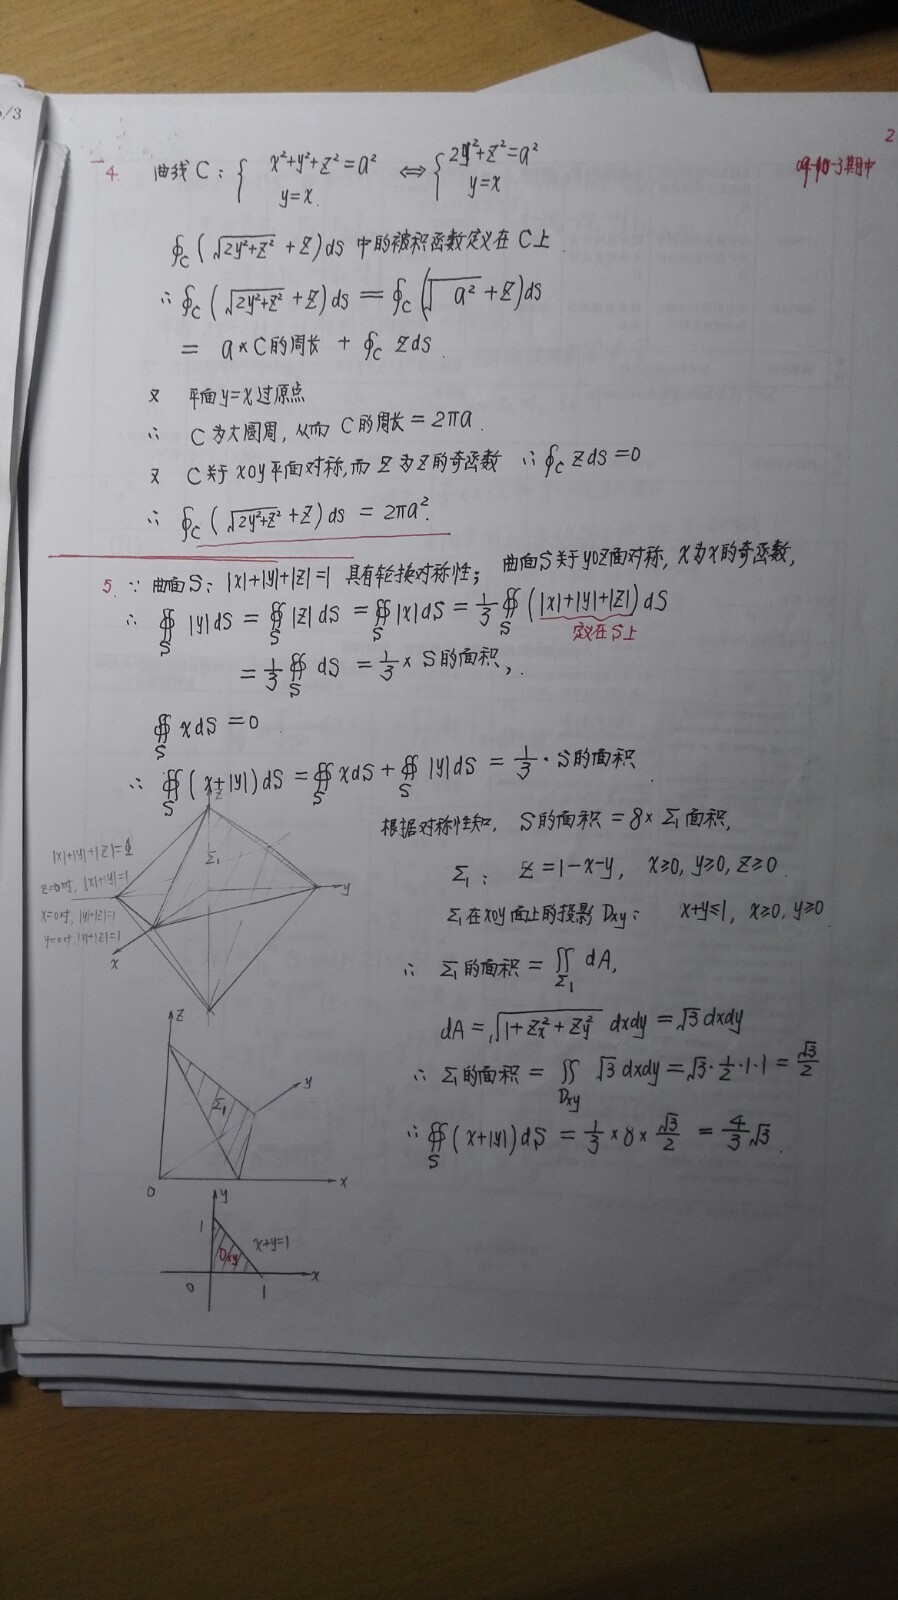 5/3
2
09-10-3期中
4. 曲线C: { x²+y²+z²=a² ⇔ { 2y²+z²=a²
y=x. y=x
∮_C (√(2y²+z²) + z)ds 中的被积函数定义在C上
∴ ∮_C (√(2y²+z²) + z)ds = ∮_C (√(a²) + z)ds
= a×C的周长 + ∮_C zds.
又 平面y=x过原点
∴ C为大圆周, 从而C的周长=2πa.
又 C关于xoy平面对称, 而z为z的奇函数 ∴ ∮_C zds=0
∴ ∮_C (√(2y²+z²) + z)ds = 2πa².
5. ∵ 曲面S: |x|+|y|+|z|=1 具有轮换对称性; 曲面S关于yoz面对称, x为x的奇函数,
∴ ∯_S |y|dS = ∯_S |z|dS = ∯_S |x|dS = 1/3 ∯_S (|x|+|y|+|z|)dS
定义在S上
= 1/3 ∯_S dS = 1/3 × S的面积,
∯_S xdS=0
∴ ∯_S (x+|y|)dS = ∯_S xdS + ∯_S |y|dS = 1/3 · S的面积
根据对称性知, S的面积=8×Σ₁面积,
Σ₁: z=1-x-y, x≥0, y≥0, z≥0
Σ₁在xoy面上的投影Dxy: x+y≤1, x≥0, y≥0
∴ Σ₁的面积 = ∬_Σ₁ dA,
dA = √(1+z_x²+z_y²) dxdy = √3 dxdy
∴ Σ₁的面积 = ∬_Dxy √3 dxdy = √3·1/2·1·1 = √3/2
∴ ∯_S (x+|y|)dS = 1/3×8×√3/2 = 4/3 √3.
z
Σ₁
|x|+|y|+|z|=1
z=0时, |x|+|y|=1
x=0时, |y|+|z|=1
y=0时, |x|+|z|=1
y
x
z
y
Σ₁
0
x
y
1
x+y=1
Dxy
x
0
1